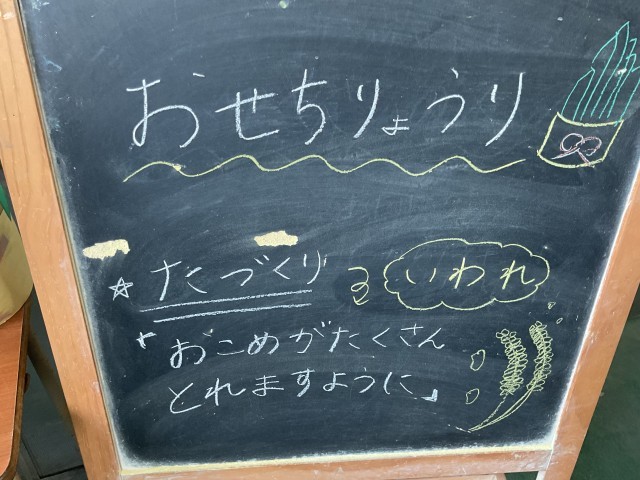 おせちりょうり
☆たづくり いわれ
「おこめがたくさん
とれますように」